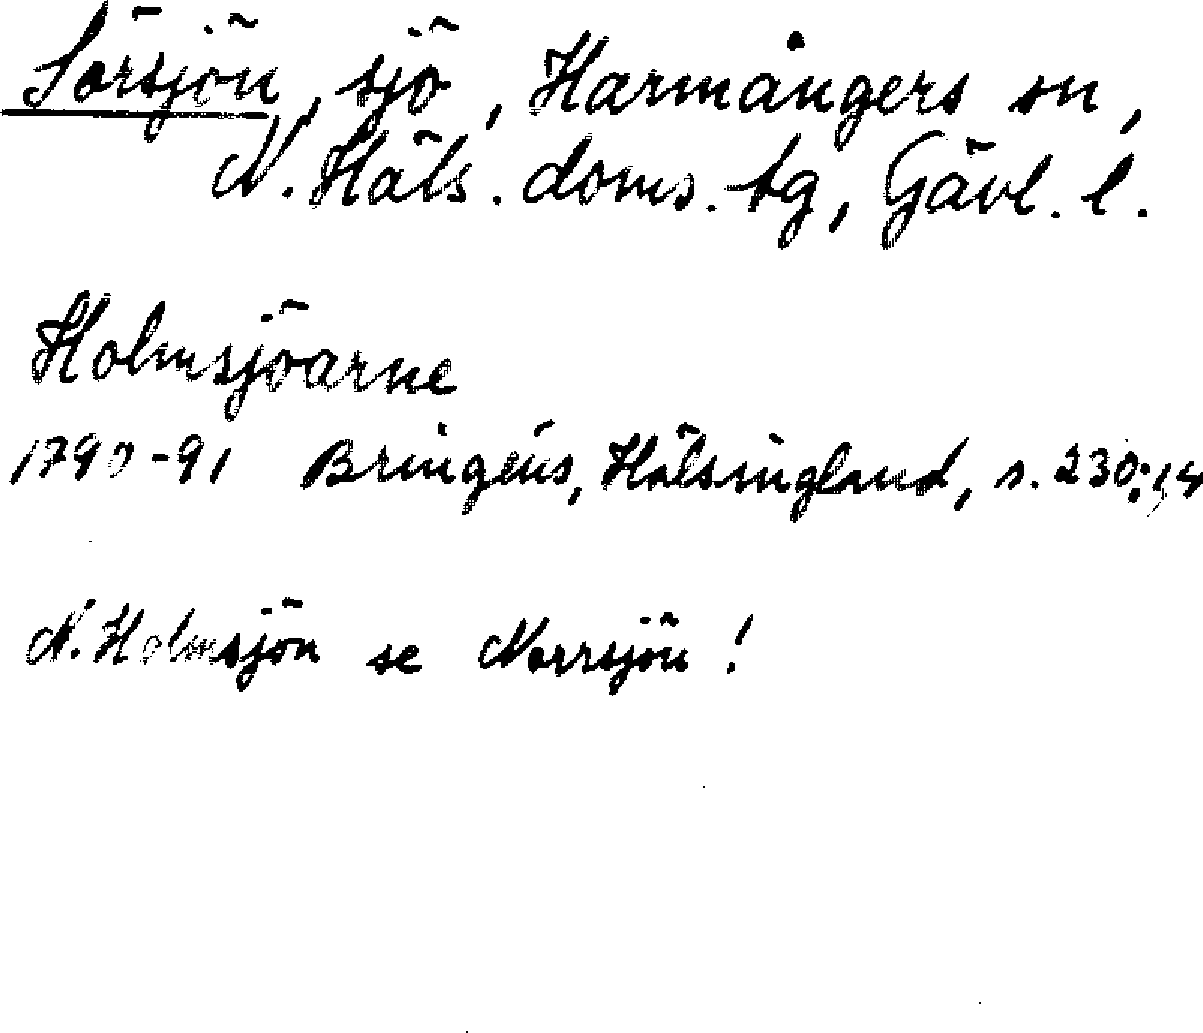 Sörsjön, sjö, Harmångers sn,
N. Häls. doms. tg, Gävl. l.
Holmsjöarne
1790-91 Bringéus, Hälsingland, s. 230; 14
N. Holmsjön se Norrsjön!